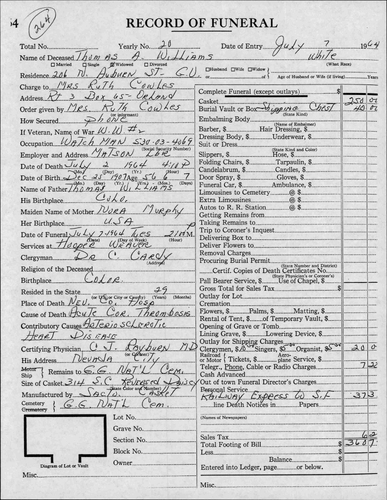 264
RECORD OF FUNERAL
Total No. Yearly No. 20 Date of Entry July 7 1964
Name of Deceased Thomas A. Williams White
(What Race)
Married Single Widowed Divorced Husband Wife Widow of
Residence 206 N. Auburn St. G.V. Age of Husband or Wife (if living) Years
Charge to Mrs Ruth Cowles
Address Rt 3 Box 65 - Orland
Order given by Mrs. Ruth Cowles
How Secured Phone
If Veteran, Name of War W.W. #2
Occupation Watch Man 530-03-4069
(Social Security Number)
Employer and Address Matson Lbr
Date of Death July 2 1964 4:10 P
Date of Birth Dec 25 1907 Age 56 6 7
Name of Father Thomas Williams
His Birthplace Colo.
Maiden Name of Mother Nora Murphy
Her Birthplace USA
Date of Funeral July 7-1964
Services at Hooper Weaver
Clergyman De C. Cardy
Religion of the Deceased
Birthplace Color.
Resided in the State 29
(or Other City or County) (Years) (Months)
Place of Death Nev. Co. Hosp
Cause of Death Acute Cor. Thrombosis
Contributory Causes Arteriosclerotic
Heart Disease
Certifying Physician C J. Rayburn MD
His Address Nevada City
Motor Remains to G.G. Nat'l Cem.
Ship
Size of Casket
Manufactured by Sac'to. Casket
Cemetery G.G. Nat'l Cem.
Crematory
Lot No.
Grave No.
Section No.
Block No.
Owner
Diagram of Lot or Vault
Misc.
Complete Funeral (except outlays) $
Casket 250 00
Burial Vault or Box Shipping Chest 40 00
(State Kind)
Embalming Body
(Name of Embalmer)
Barber, $ Hair Dressing, $
Dressing Body, $ Underwear, $
Suit or Dress
(State Kind and Color)
Slippers, $ Hose, $
Folding Chairs, $ Tarpaulin, $
Candelabrum, $ Candles, $
Door Spray, $ Gloves, $
Funeral Car, $ Ambulance, $
Limousines to Cemetery @ $
Extra Limousines @ $
Autos to R. R. Station @ $
Getting Remains from
Taking Remains to
Trip to Coroner's Inquest
Delivering Box to
Deliver Flowers to
Removal Charges
Procuring Burial Permit
(State Number and District)
Certif. Copies of Death Certificates No.
(State Physician's or Coroner's)
Pall Bearer Service, $ Use of Chapel, $
Gross Total for Sales Tax $
Outlay for Lot
Cremation
Flowers, $ Palms, $ Matting, $
Rental, $ of Temporary Vault, $
Opening of Grave or Tomb
Lining Grave, $ Lowering Device, $
Outlay for Shipping Charges
Clergymen, $ Singers, $ Organist, $ 20 0
Railroad or Motor Tickets, $ Aeroplane Service, $
Telegr., Phone, Cable or Radio Charges
Cash Advanced
Out of town Funeral Director's Charges
Personal Service
Railway Express to S.F. 37 3
line Death Notices in Papers
(Names of Newspapers)
Sales Tax
Total Footing of Bill $
Less
Balance $
Entered into Ledger, page or below.
Misc.